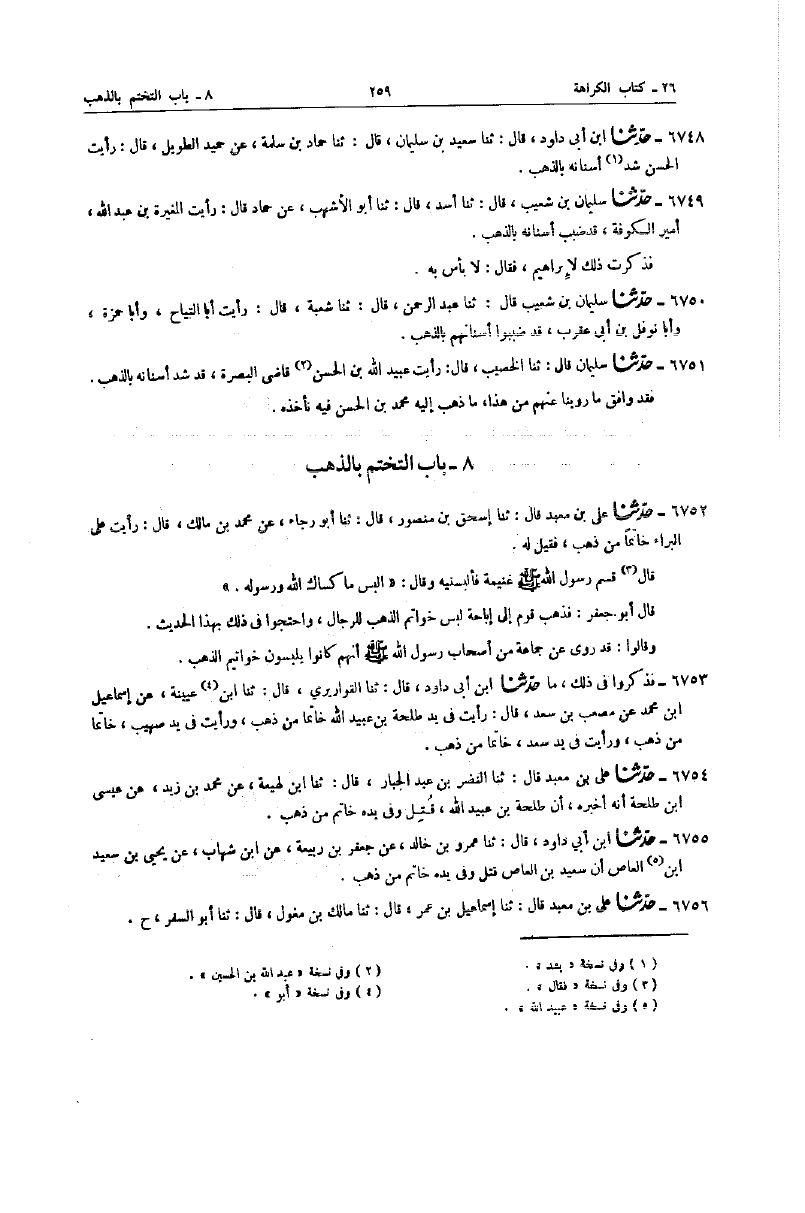 ٢٦ ـ كتاب الكراهة ٢٥٩ ٨ ـ باب التختم بالذهب
٦٧٤٨ ـ حدثنا ابن أبى داود ، قال : ثنا سعيد بن سليمان ، قال : ثنا حماد بن سلمة ، عن حميد الطويل ، قال : رأيت
الحسن شد(١) أسنانه بالذهب .
٦٧٤٩ ـ حدثنا سليمان بن شعيب ، قال : ثنا أسد ، قال : ثنا أبو الأشهب ، عن حماد قال : رأيت المغيرة بن عبد الله ،
أمير الكوفة ، قد ضبب أسنانه بالذهب .
فذكرت ذلك لإبراهيم ، فقال : لا بأس به .
٦٧٥٠ ـ حدثنا سليمان بن شعيب قال : ثنا عبد الرحمن ، قال : ثنا شعبة ، قال : رأيت أبا التياح ، وأبا حمزة ،
وأبا نوفل بن أبى عقرب ، قد ضببوا أسنانهم بالذهب .
٦٧٥١ ـ حدثنا سليمان قال : ثنا الخصيب ، قال: رأيت عبيد الله بن الحسن(٢) قاضى البصرة ، قد شد أسنانه بالذهب .
فقد وافق ما روينا عنهم من هذا، ما ذهب إليه محمد بن الحسن فيه نأخذه .
٨ ـ باب التختم بالذهب
٦٧٥٢ ـ حدثنا على بن معبد قال : ثنا إسحق بن منصور ، قال : ثنا أبو رجاء ، عن محمد بن مالك ، قال : رأيت على
البراء خاتماً من ذهب ، فقيل له .
قال(٣) قسم رسول الله ﷺ غنيمة فألبسنيه وقال : « البس ما كساك الله ورسوله . »
قال أبو جعفر : فذهب قوم إلى إباحة لبس خواتم الذهب للرجال ، واحتجوا فى ذلك بهذا الحديث .
وقالوا : قد روى عن جماعة من أصحاب رسول الله ﷺ أنهم كانوا يلبسون خواتيم الذهب .
٦٧٥٣ ـ فذكروا فى ذلك ، ما حدثنا ابن أبى داود ، قال : ثنا القواريري ، قال : ثنا ابن(٤) عيينة ، عن إسماعيل
ابن محمد عن مصعب بن سعد ، قال : رأيت فى يد طلحة بن عبيد الله خاتما من ذهب ، ورأيت فى يد صهيب ، خاتما
من ذهب ، ورأيت فى يد سعد ، خاتما من ذهب .
٦٧٥٤ ـ حدثنا على بن معبد قال : ثنا النضر بن عبد الجبار ، قال : ثنا ابن لهيعة ، عن محمد بن زيد ، عن عيسى
ابن طلحة أنه أخبره ، أن طلحة بن عبيد الله ، قُتِل وفى يده خاتم من ذهب .
٦٧٥٥ ـ حدثنا ابن أبي داود ، قال : ثنا عمرو بن خالد ، عن جعفر بن ربيعة ، عن ابن شهاب ، عن يحيى بن سعيد
ابن(٥) العاص أن سعيد بن العاص قتل وفى يده خاتم من ذهب .
٦٧٥٦ ـ حدثنا على بن معبد قال : ثنا إسماعيل بن عمر ، قال : ثنا مالك بن مغول ، قال : ثنا أبو السفر ، ح .
(١) وفى نسخة « بشد » . (٢) وفى نسخة « عبد الله بن الحسين » .
(٣) وفى نسخة « فقال » . (٤) وفى نسخة « أبو » .
(٥) وفى نسخة « عبيد الله » .